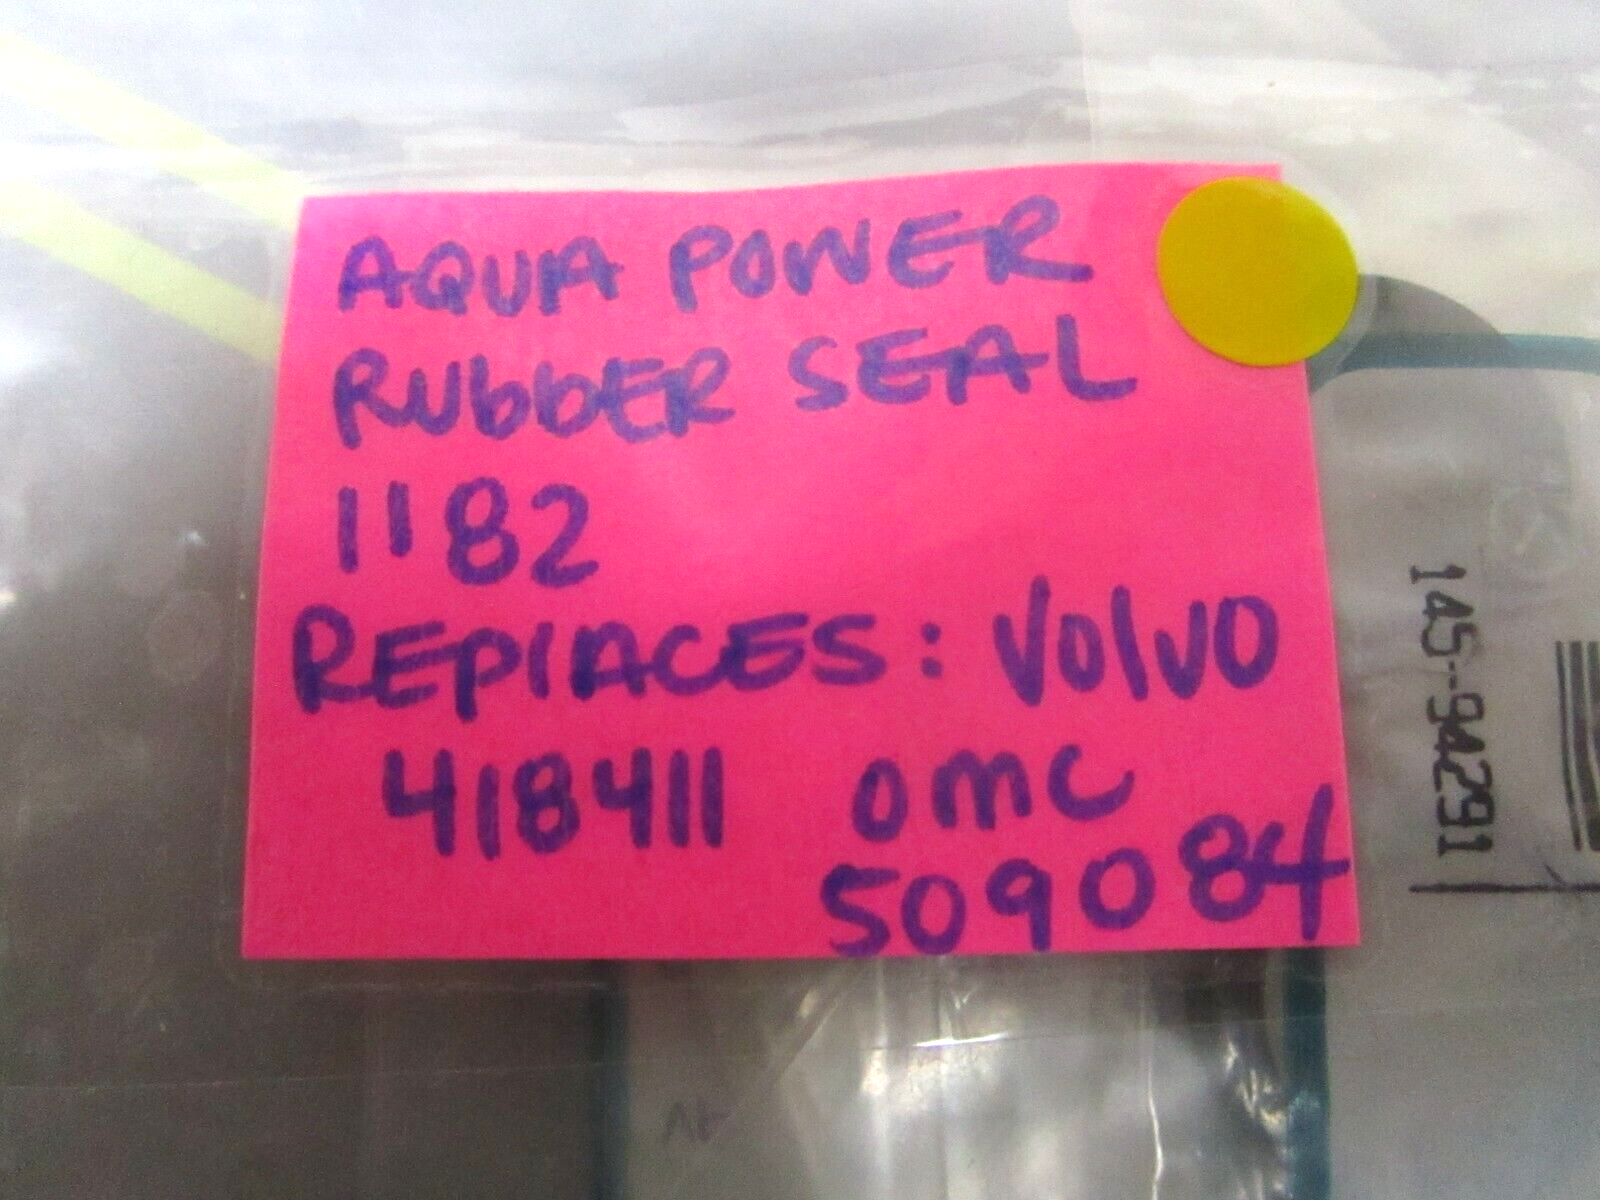 AQUA POWER
RUbbER SEAL
1182
REPlACES: VOlVO
418411 OMC
509084
145-94291